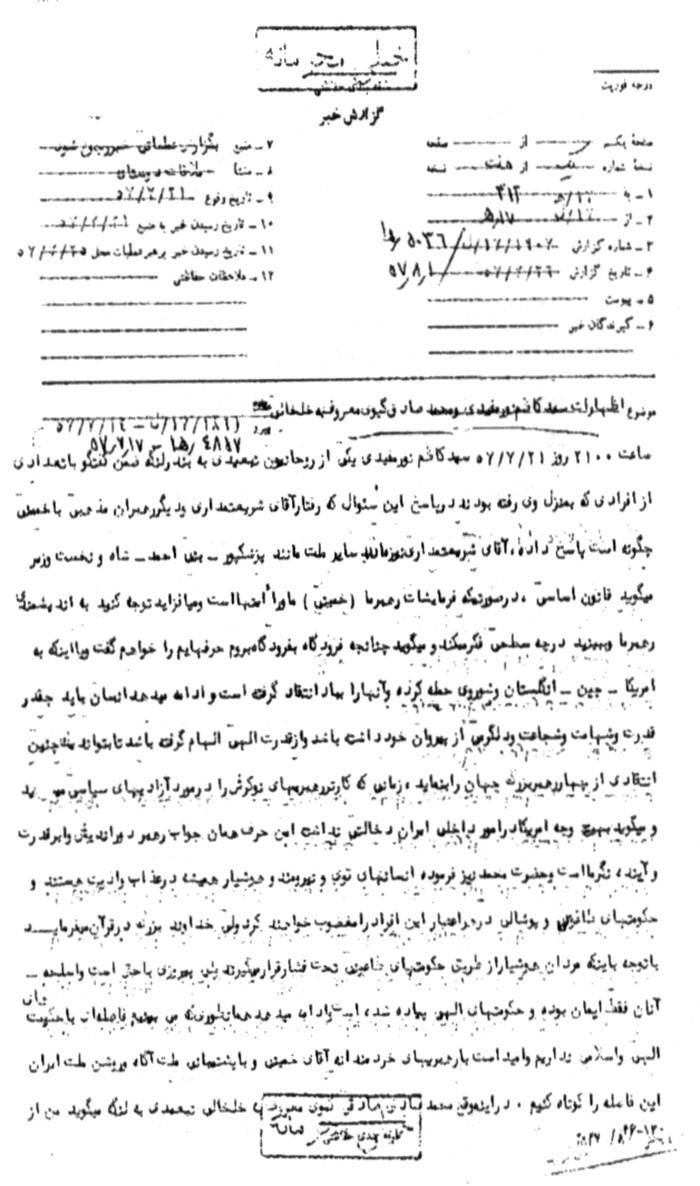 خیلی محرمانه
طبقه بندی حفاظتی
درجه فوریت
گزارش خبر
صفحه یکم از صفحه
نسخه شماره از هفت نسخه
۱ - به ۳۱۲
۲ - از ۵ھ۱۷
۳ - شماره گزارش
۴ - تاریخ گزارش ۵۷/۷/۲۶ ۵۷٫۸٫۱
۵ - پیوست
۶ - گیرندگان خبر
۷ - منبع
۸ - منشأ ملاقات دوستان
۹ - تاریخ وقوع ۵۷/۷/۲۱
۱۰ - تاریخ رسیدن خبر به منبع ۵۷/۷/۲۱
۱۱ - تاریخ رسیدن خبر برهبر عملیات محل ۵۷/۷/۲۵
۱۲ - ملاحظات حفاظتی
موضوع اظهارات سید کاظم نورمفیدی و محمد صادق گیوی معروف به خلخالی
پیرو
ساعت ۲۱۰۰ روز ۵۷/۷/۲۱ سید کاظم نورمفیدی یکی از روحانیون تبعیدی به بندرلنگه ضمن گفتگو با تعدادی
از افرادی که بمنزل وی رفته بودند در پاسخ این سئوال که رفتار آقای شریعتمداری و دیگر رهبران مذهبی با خمینی
چگونه است پاسخ داده، آقای شریعتمداری نیز مانند سایر ملت مانند پزشکپور - بنی احمد - شاه و نخست وزیر
میگوید قانون اساسی، در صورتیکه فرمایشات رهبر ما (خمینی) ماوراء اینها است و میافزاید توجه کنید به اندیشه‌های
رهبر ما و ببینید در چه سطحی فکر میکند و میگوید چنانچه فرودگاه بفرودگاه بروم حرفهایم را خواهم گفت و یا اینکه به
امریکا - چین - انگلستان و شوروی حمله کرده و آنها را بباد انتقاد گرفته است و ادامه میدهد انسان باید چقدر
قدرت و شهامت و شجاعت و دلگرمی از پیروان خود داشته باشد و از قدرت الهی الهام گرفته باشد تا بتواند چنین
انتقادی از چهار رهبر بزرگ جهان را بنماید، زمانی که کارتر رهبریهای نوکرش را در مورد آزادیهای سیاسی
و میگوید بهیچ وجه امریکا در امور داخلی ایران دخالتی نداشته این حرف همان جواب رهبر دوراندیش و ابرقدرت
و آینده نگر ما است و حضرت محمد نیز فرموده انسانهای قوی و نیرومند و هوشیار همیشه در عذاب و اذیت هستند و
حکومتهای و پوشالی در هر اعتبار این افراد را مغضوب خواهند کرد ولی خداوند بزرگ در قرآن میفرماید
با توجه باینکه مردان هوشیار از طریق حکومتهای تحت فشار قرار میگیرند ولی پیروزی با حق است و اسلحه -
آنان فقط ایمان بوده و حکومتهای الهی پیاده شده است و ادامه میدهد همانطوری که می بینیم فاصله‌ای با حکومت
الهی و اسلامی نداریم و امید است با رهبریهای خردمندانه آقای خمینی و با پشتیبانی ملت آگاه و روشن ملت ایران
این فاصله را کوتاه کنیم. در این موقع محمد صادق صادقی گیوی معروف به خلخالی تبعیدی به لنگه میگوید من از
طبقه بندی حفاظتی